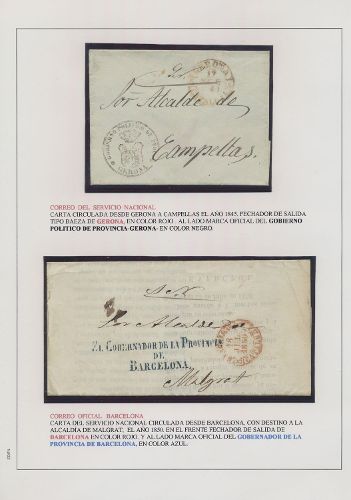 Sor Alcalde de
Campellas.
GOBIERNO POLITICO DE
GERONA
CORREO DEL SERVICIO NACIONAL
CARTA CIRCULADA DESDE GERONA A CAMPELLAS EL AÑO 1845. FECHADOR DE SALIDA
TIPO BAEZA DE GERONA, EN COLOR ROJO . AL LADO MARCA OFICIAL DEL GOBIERNO
POLITICO DE PROVINCIA-GERONA- EN COLOR NEGRO.
S.N.
Sor Alcalde de
EL GOBERNADOR DE LA PROVINCIA
DE
BARCELONA.
Malgrat
CORREO OFICIAL BARCELONA
CARTA DEL SERVICIO NACIONAL CIRCULADA DESDE BARCELONA, CON DESTINO A LA
ALCALDIA DE MALGRAT; EL AÑO 1850. EN EL FRENTE FECHADOR DE SALIDA DE
BARCELONA EN COLOR ROJO. Y AL LADO MARCA OFICIAL DEL GOBERNADOR DE LA
PROVINCIA DE BARCELONA, EN COLOR AZUL.